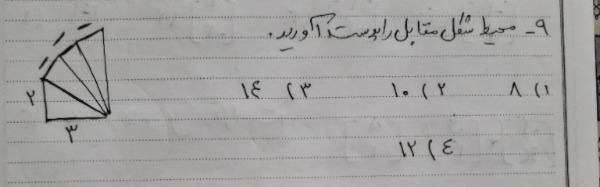 ۹- محیط شکل مقابل را بدست آورید.
۱) ۸ ۲) ۱۰ ۳) ۱۴
۴) ۱۲
۲
۳